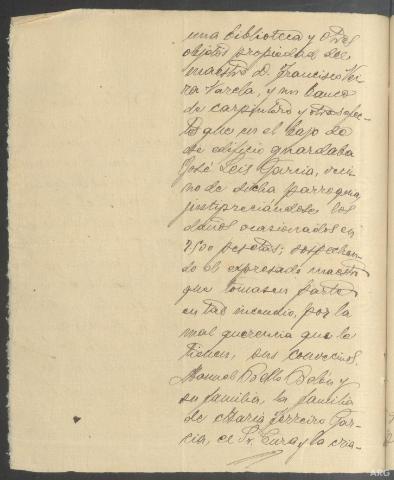 una biblioteca y otros
objetos propiedad del
maestro D. Francisco Nei-
ra Varela, y un banco
de carpintero y otros efec-
tos que en el bajo de
ese edificio guardaba
José Leis García, veci-
no de dicha parroquia,
justipreciándose los
daños ocasionados en
7.500 pesetas; sospechan-
do el expresado maestro
que tomasen parte
en tal incendio, por la
mal querencia que le
tienen, sus convecinos
Manuel Bello Belón y
su familia, la familia
de María Ferreiro Gar-
cía, el Sr. Cura y la cria-
ARG